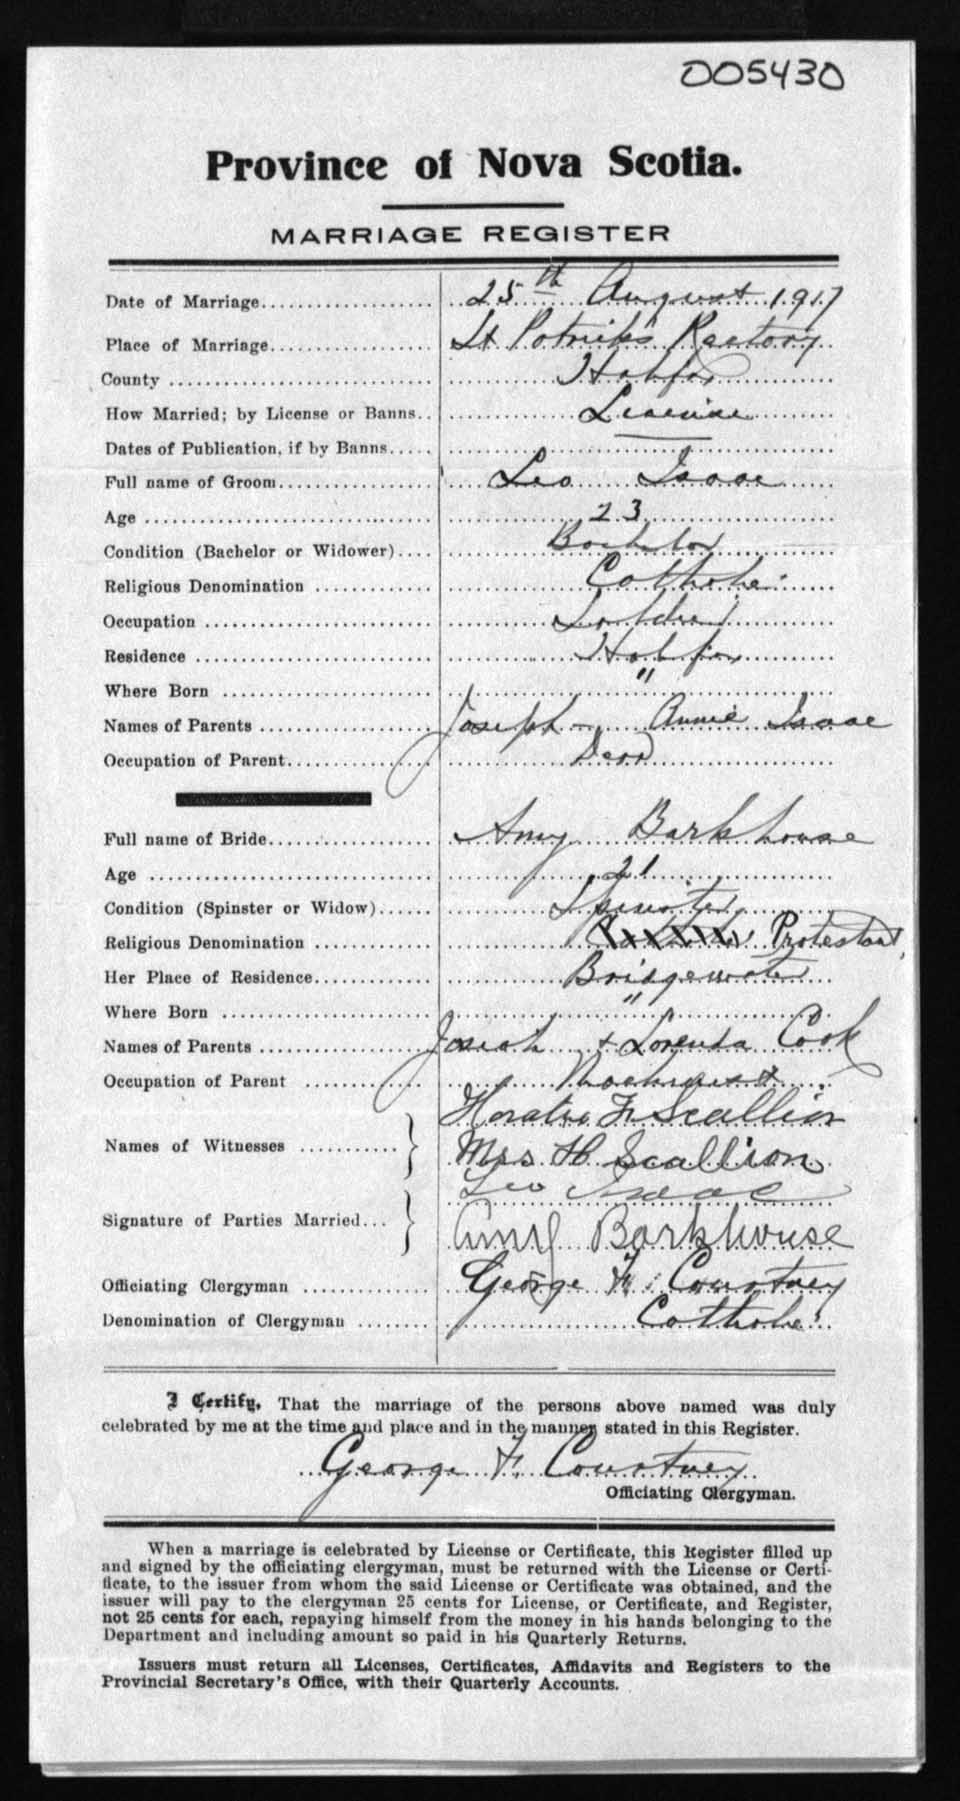 005430
Province of Nova Scotia.
MARRIAGE REGISTER
Date of Marriage.................. 25th August 1917
Place of Marriage.................. St Patrick's Rectory
County .................. Halifax
How Married; by License or Banns.. License
Dates of Publication, if by Banns.....
Full name of Groom.................. Leo Isaac
Age .................. 23
Condition (Bachelor or Widower).... Bachelor
Religious Denomination .................. Catholic
Occupation .................. Soldier
Residence .................. Halifax
Where Born .................. "
Names of Parents .................. Joseph - Annie Isaac
Occupation of Parent.................. Dead
Full name of Bride.................. Amy Barkhouse
Age .................. 21
Condition (Spinster or Widow)...... Spinster
Religious Denomination .................. Protestant
Her Place of Residence............. Bridgewater
Where Born .................. "
Names of Parents .................. Josiah + Lorenda Cook
Occupation of Parent .................. Machinist
Names of Witnesses ........... } Horatio F. Scallion
Mrs H. Scallion
Signature of Parties Married... } Leo Isaac
Amy Barkhouse
Officiating Clergyman .............. George F. Courtney
Denomination of Clergyman ........ Catholic
I Certify, That the marriage of the persons above named was duly
celebrated by me at the time and place and in the manner stated in this Register.
George F. Courtney
Officiating Clergyman.
When a marriage is celebrated by License or Certificate, this Register filled up
and signed by the officiating clergyman, must be returned with the License or Certi-
ficate, to the issuer from whom the said License or Certificate was obtained, and the
issuer will pay to the clergyman 25 cents for License, or Certificate, and Register,
not 25 cents for each, repaying himself from the money in his hands belonging to the
Department and including amount so paid in his Quarterly Returns.
Issuers must return all Licenses, Certificates, Affidavits and Registers to the
Provincial Secretary's Office, with their Quarterly Accounts.